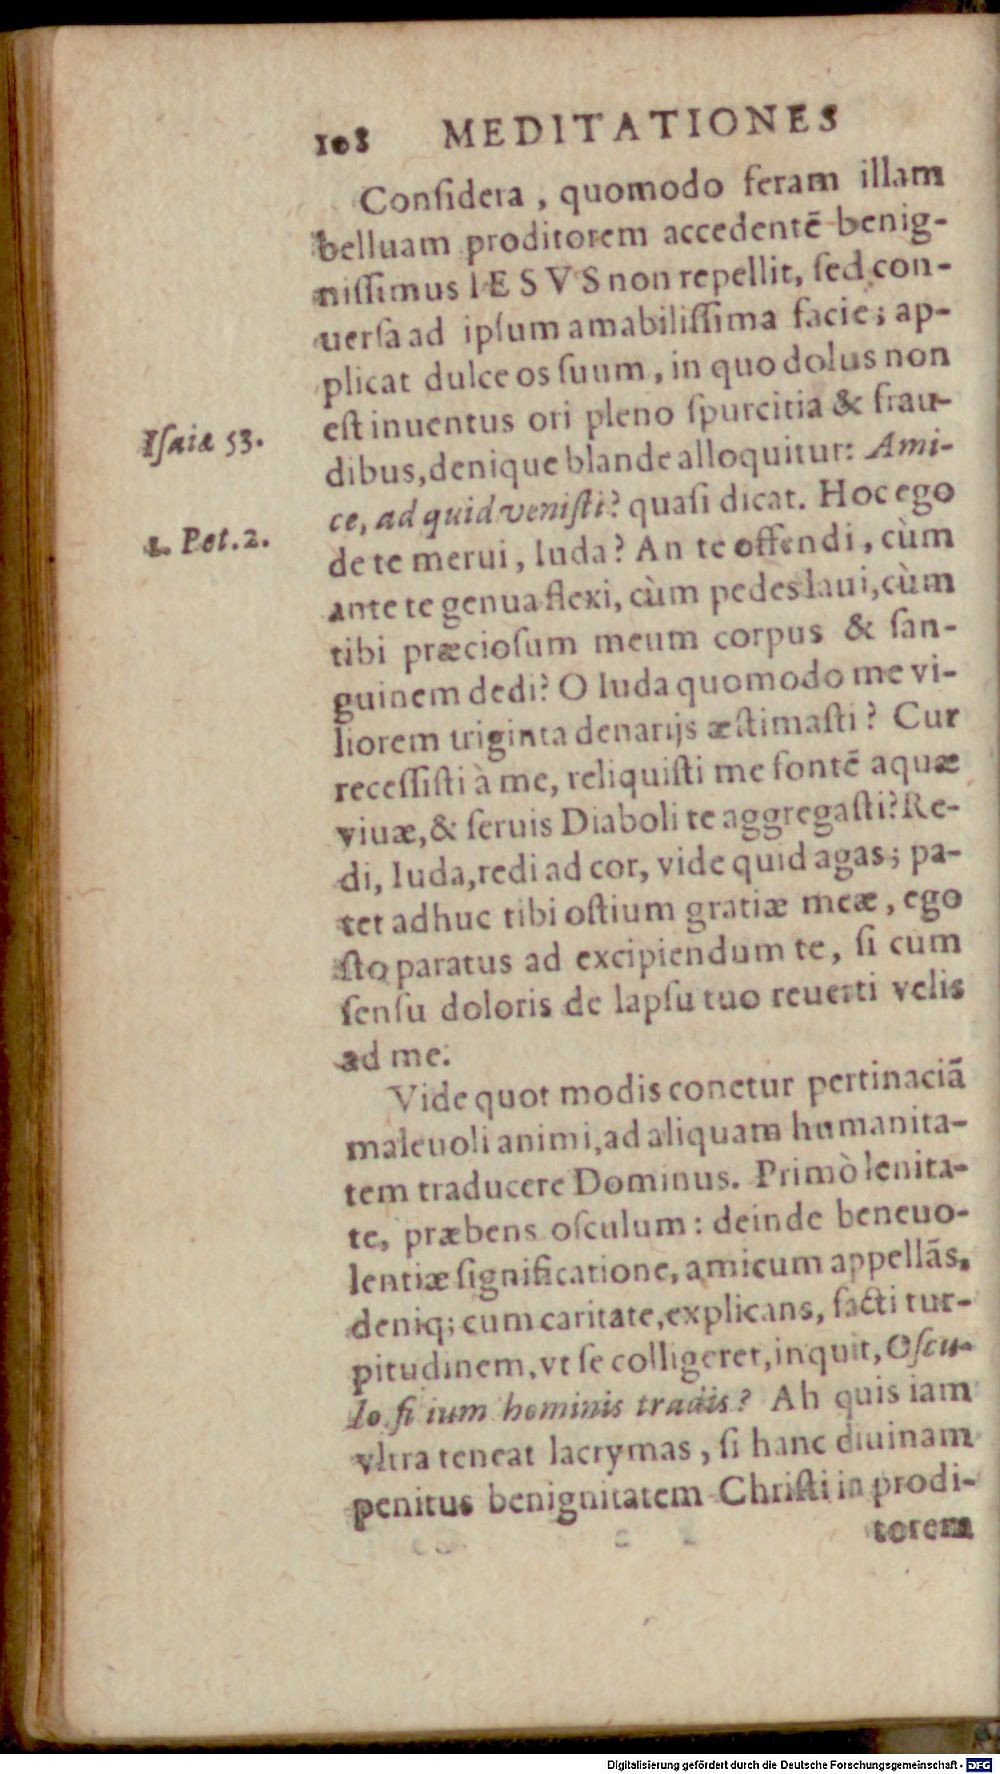 108 MEDITATIONES
Conſidera , quomodo feram illam
belluam proditorem accedentē benig-
niſſimus IESVS non repellit, ſed con-
uerſa ad ipſum amabiliſſima facie; ap-
plicat dulce os ſuum , in quo dolus non
eſt inuentus ori pleno ſpurcitia & frau-
Iſaiæ 53.
dibus, denique blande alloquitur: Ami-
ce, ad quid veniſti? quaſi dicat. Hoc ego
1. Pet. 2.
de te merui , Iuda? An te offendi , cùm
ante te genua flexi, cùm pedes laui, cùm
tibi præcioſum meum corpus & ſan-
guinem dedi? O Iuda quomodo me vi-
liorem triginta denarijs æſtimaſti? Cur
receſſiſti à me, reliquiſti me fontē aquæ
viuæ, & ſeruis Diaboli te aggregaſti? Re-
di, Iuda, redi ad cor, vide quid agas; pa-
tet adhuc tibi oſtium gratiæ meæ , ego
ſto paratus ad excipiendum te, ſi cum
ſenſu doloris de lapſu tuo reuerti velis
ad me.
Vide quot modis conetur pertinaciā
maleuoli animi, ad aliquam humanita-
tem traducere Dominus. Primò lenita-
te, præbens oſculum : deinde beneuo-
lentiæ ſignificatione, amicum appellās,
deniq; cum caritate, explicans, facti tur-
pitudinem, vt ſe colligeret, inquit, Oſcu-
lo filium hominis tradis? Ah quis iam
vltra teneat lacrymas , ſi hanc diuinam
penitus benignitatem Chriſti in prodi-
torem
Digitalisierung gefördert durch die Deutsche Forschungsgemeinschaft - DFG